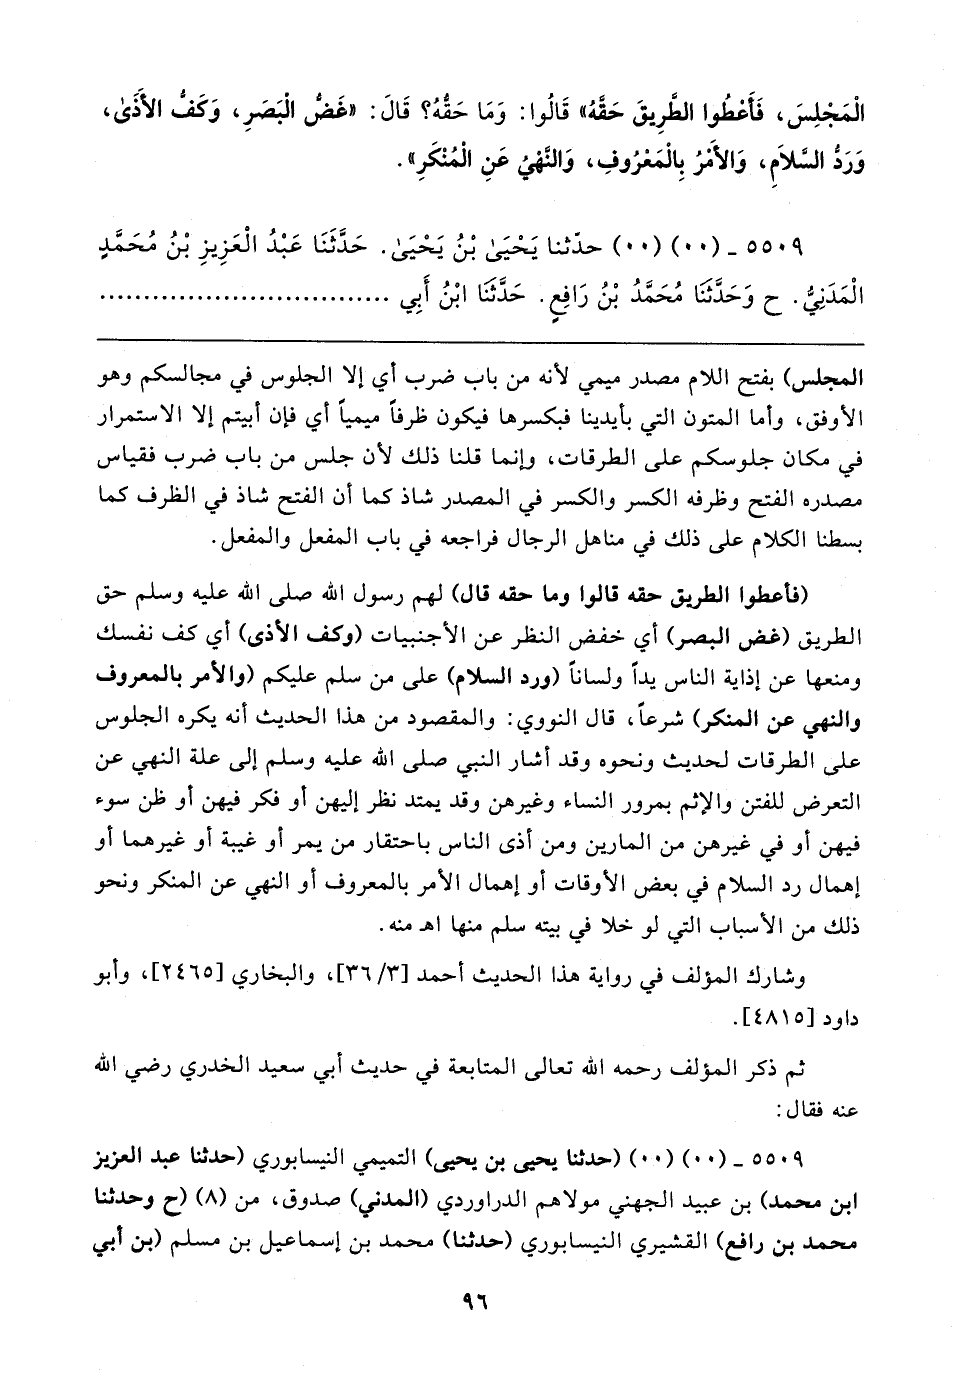 الْمَجْلِسَ، فَأَعْطُوا الطَّرِيقَ حَقَّهُ» قَالُوا: وَمَا حَقُّهُ؟ قَالَ: «غَضُّ الْبَصَرِ، وَكَفُّ الأَذَىٰ،
وَرَدُّ السَّلاَمِ، وَالأَمْرُ بِالْمَعْرُوفِ، وَالنَّهْيُ عَنِ الْمُنْكَرِ».
٥٥٠٩ ـ (٠٠) (٠٠) حدّثنا يَحْيَىٰ بْنُ يَحْيَىٰ. حَدَّثَنَا عَبْدُ الْعَزِيزِ بْنُ مُحَمَّدٍ
الْمَدَنِيُّ. ح وَحَدَّثَنَا مُحَمَّدُ بْنُ رَافِعٍ. حَدَّثَنَا ابْنُ أَبِي ................................
المجلس) بفتح اللام مصدر ميمي لأنه من باب ضرب أي إلا الجلوس في مجالسكم وهو
الأوفق، وأما المتون التي بأيدينا فبكسرها فيكون ظرفاً ميمياً أي فإن أبيتم إلا الاستمرار
في مكان جلوسكم على الطرقات، وإنما قلنا ذلك لأن جلس من باب ضرب فقياس
مصدره الفتح وظرفه الكسر والكسر في المصدر شاذ كما أن الفتح شاذ في الظرف كما
بسطنا الكلام على ذلك في مناهل الرجال فراجعه في باب المفعل والمفعل.
(فأعطوا الطريق حقه قالوا وما حقه قال) لهم رسول الله صلى الله عليه وسلم حق
الطريق (غض البصر) أي خفض النظر عن الأجنبيات (وكف الأذى) أي كف نفسك
ومنعها عن إذاية الناس يداً ولساناً (ورد السلام) على من سلم عليكم (والأمر بالمعروف
والنهي عن المنكر) شرعاً، قال النووي: والمقصود من هذا الحديث أنه يكره الجلوس
على الطرقات لحديث ونحوه وقد أشار النبي صلى الله عليه وسلم إلى علة النهي عن
التعرض للفتن والإثم بمرور النساء وغيرهن وقد يمتد نظر إليهن أو فكر فيهن أو ظن سوء
فيهن أو في غيرهن من المارين ومن أذى الناس باحتقار من يمر أو غيبة أو غيرهما أو
إهمال رد السلام في بعض الأوقات أو إهمال الأمر بالمعروف أو النهي عن المنكر ونحو
ذلك من الأسباب التي لو خلا في بيته سلم منها اهـ منه.
وشارك المؤلف في رواية هذا الحديث أحمد [٣/ ٣٦]، والبخاري [٢٤٦٥]، وأبو
داود [٤٨١٥].
ثم ذكر المؤلف رحمه الله تعالى المتابعة في حديث أبي سعيد الخدري رضي الله
عنه فقال:
٥٥٠٩ ـ (٠٠) (٠٠) (حدثنا يحيى بن يحيى) التميمي النيسابوري (حدثنا عبد العزيز
ابن محمد) بن عبيد الجهني مولاهم الدراوردي (المدني) صدوق، من (٨) (ح وحدثنا
محمد بن رافع) القشيري النيسابوري (حدثنا) محمد بن إسماعيل بن مسلم (بن أبي
٩٦